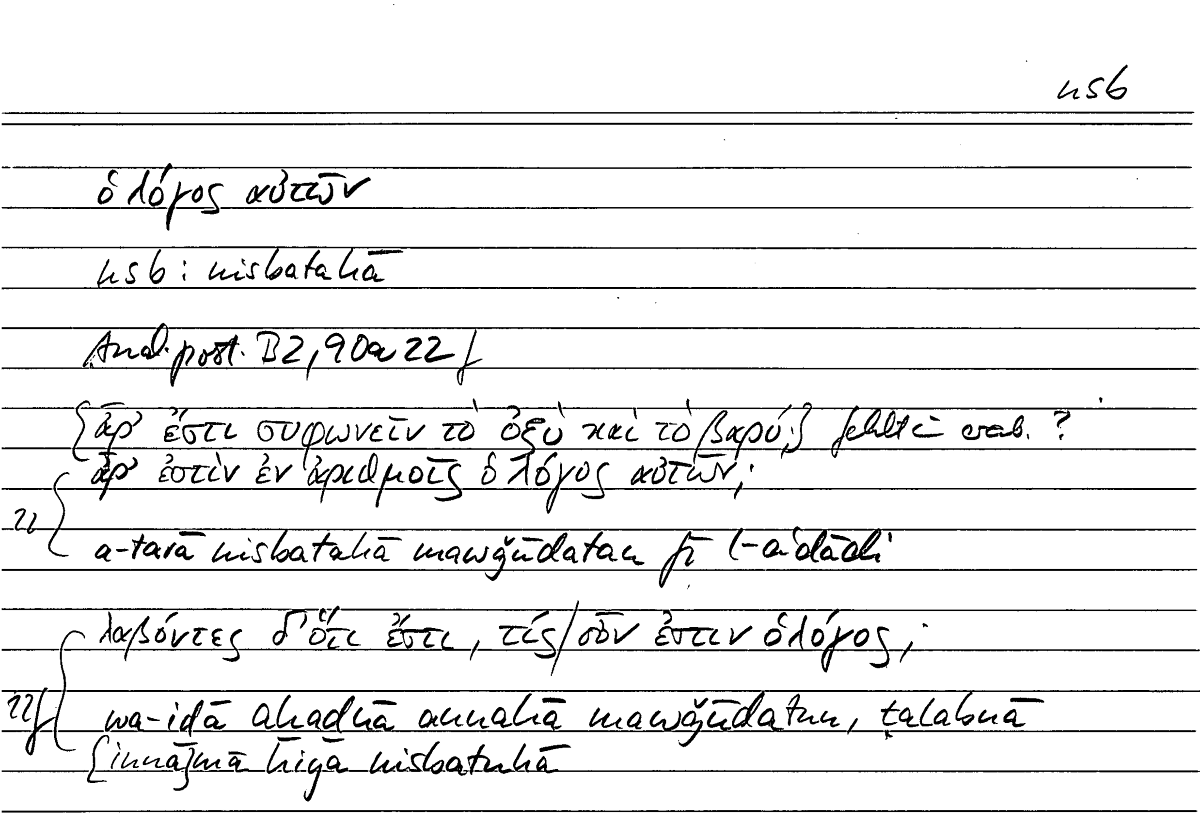 nsb
ὁ λόγος αὐτῶν
nsb: nisbatahā
Anal. post. B2, 90a 22 f
{ἆρ' ἔστι συφωνεῖν τὸ ὀξὺ καὶ τὸ βαρύ;} fehlt i arab. ?
ἆρ' ἐστὶν ἐν ἀριθμοῖς ὁ λόγος αὐτῶν;
22
a-tarā nisbatahā mawǧūdatan fī l-aʿdādi
λαβόντες δ' ὅτι ἔστι, τίς/οὖν ἐστιν ὁ λόγος;
22f
wa-iḏā aḫaḏnā annahā mawǧūdatun, ṭalabnā
[innā]mā hiya nisbatuhā